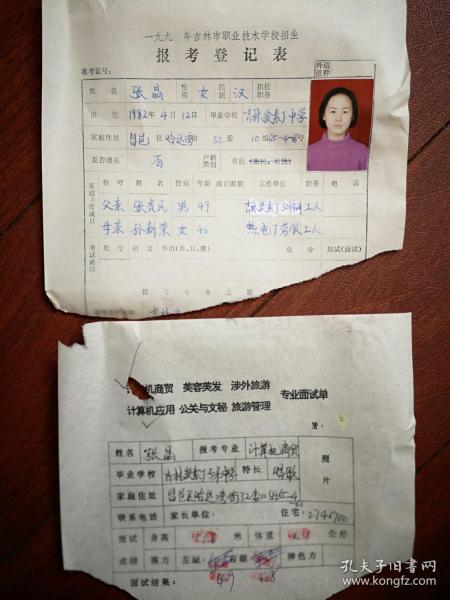 一九九 年吉林市职业技术学校招生
报考登记表
准考证号:
外语语种
姓名 张晶 性别 女 民族 汉 担任职务
出生 1982年4月12日 毕业学校 中学
家庭住址 昌邑区哈达湾街32委10组
是否团员 否 户籍类别 市民
家庭主要成员
称呼 姓名 性别 年龄 政治面貌 工作单位 职务 电话
父亲 张贵民 男 49 工人
母亲 孙新荣 女 46 热电厂劳服工人
考试成绩 数学 语文 外语(英、日、俄) 总分 加试(面试)
报考专业志愿
机商贸 美容美发 涉外旅游
专业面试单
计算机应用 公关与文秘 旅游管理
姓名 张晶 报考专业 计算机商贸 照片
毕业学校 中学 特长 唱歌
家庭住址 昌邑区哈达湾街32委10组
联系电话 家长单位: 住宅:2746700
面试 身高 米 体重 公斤
成绩 视力 左眼: 右眼: 辨色力
面试结果:
孔夫子旧书网
www.kongfz.com